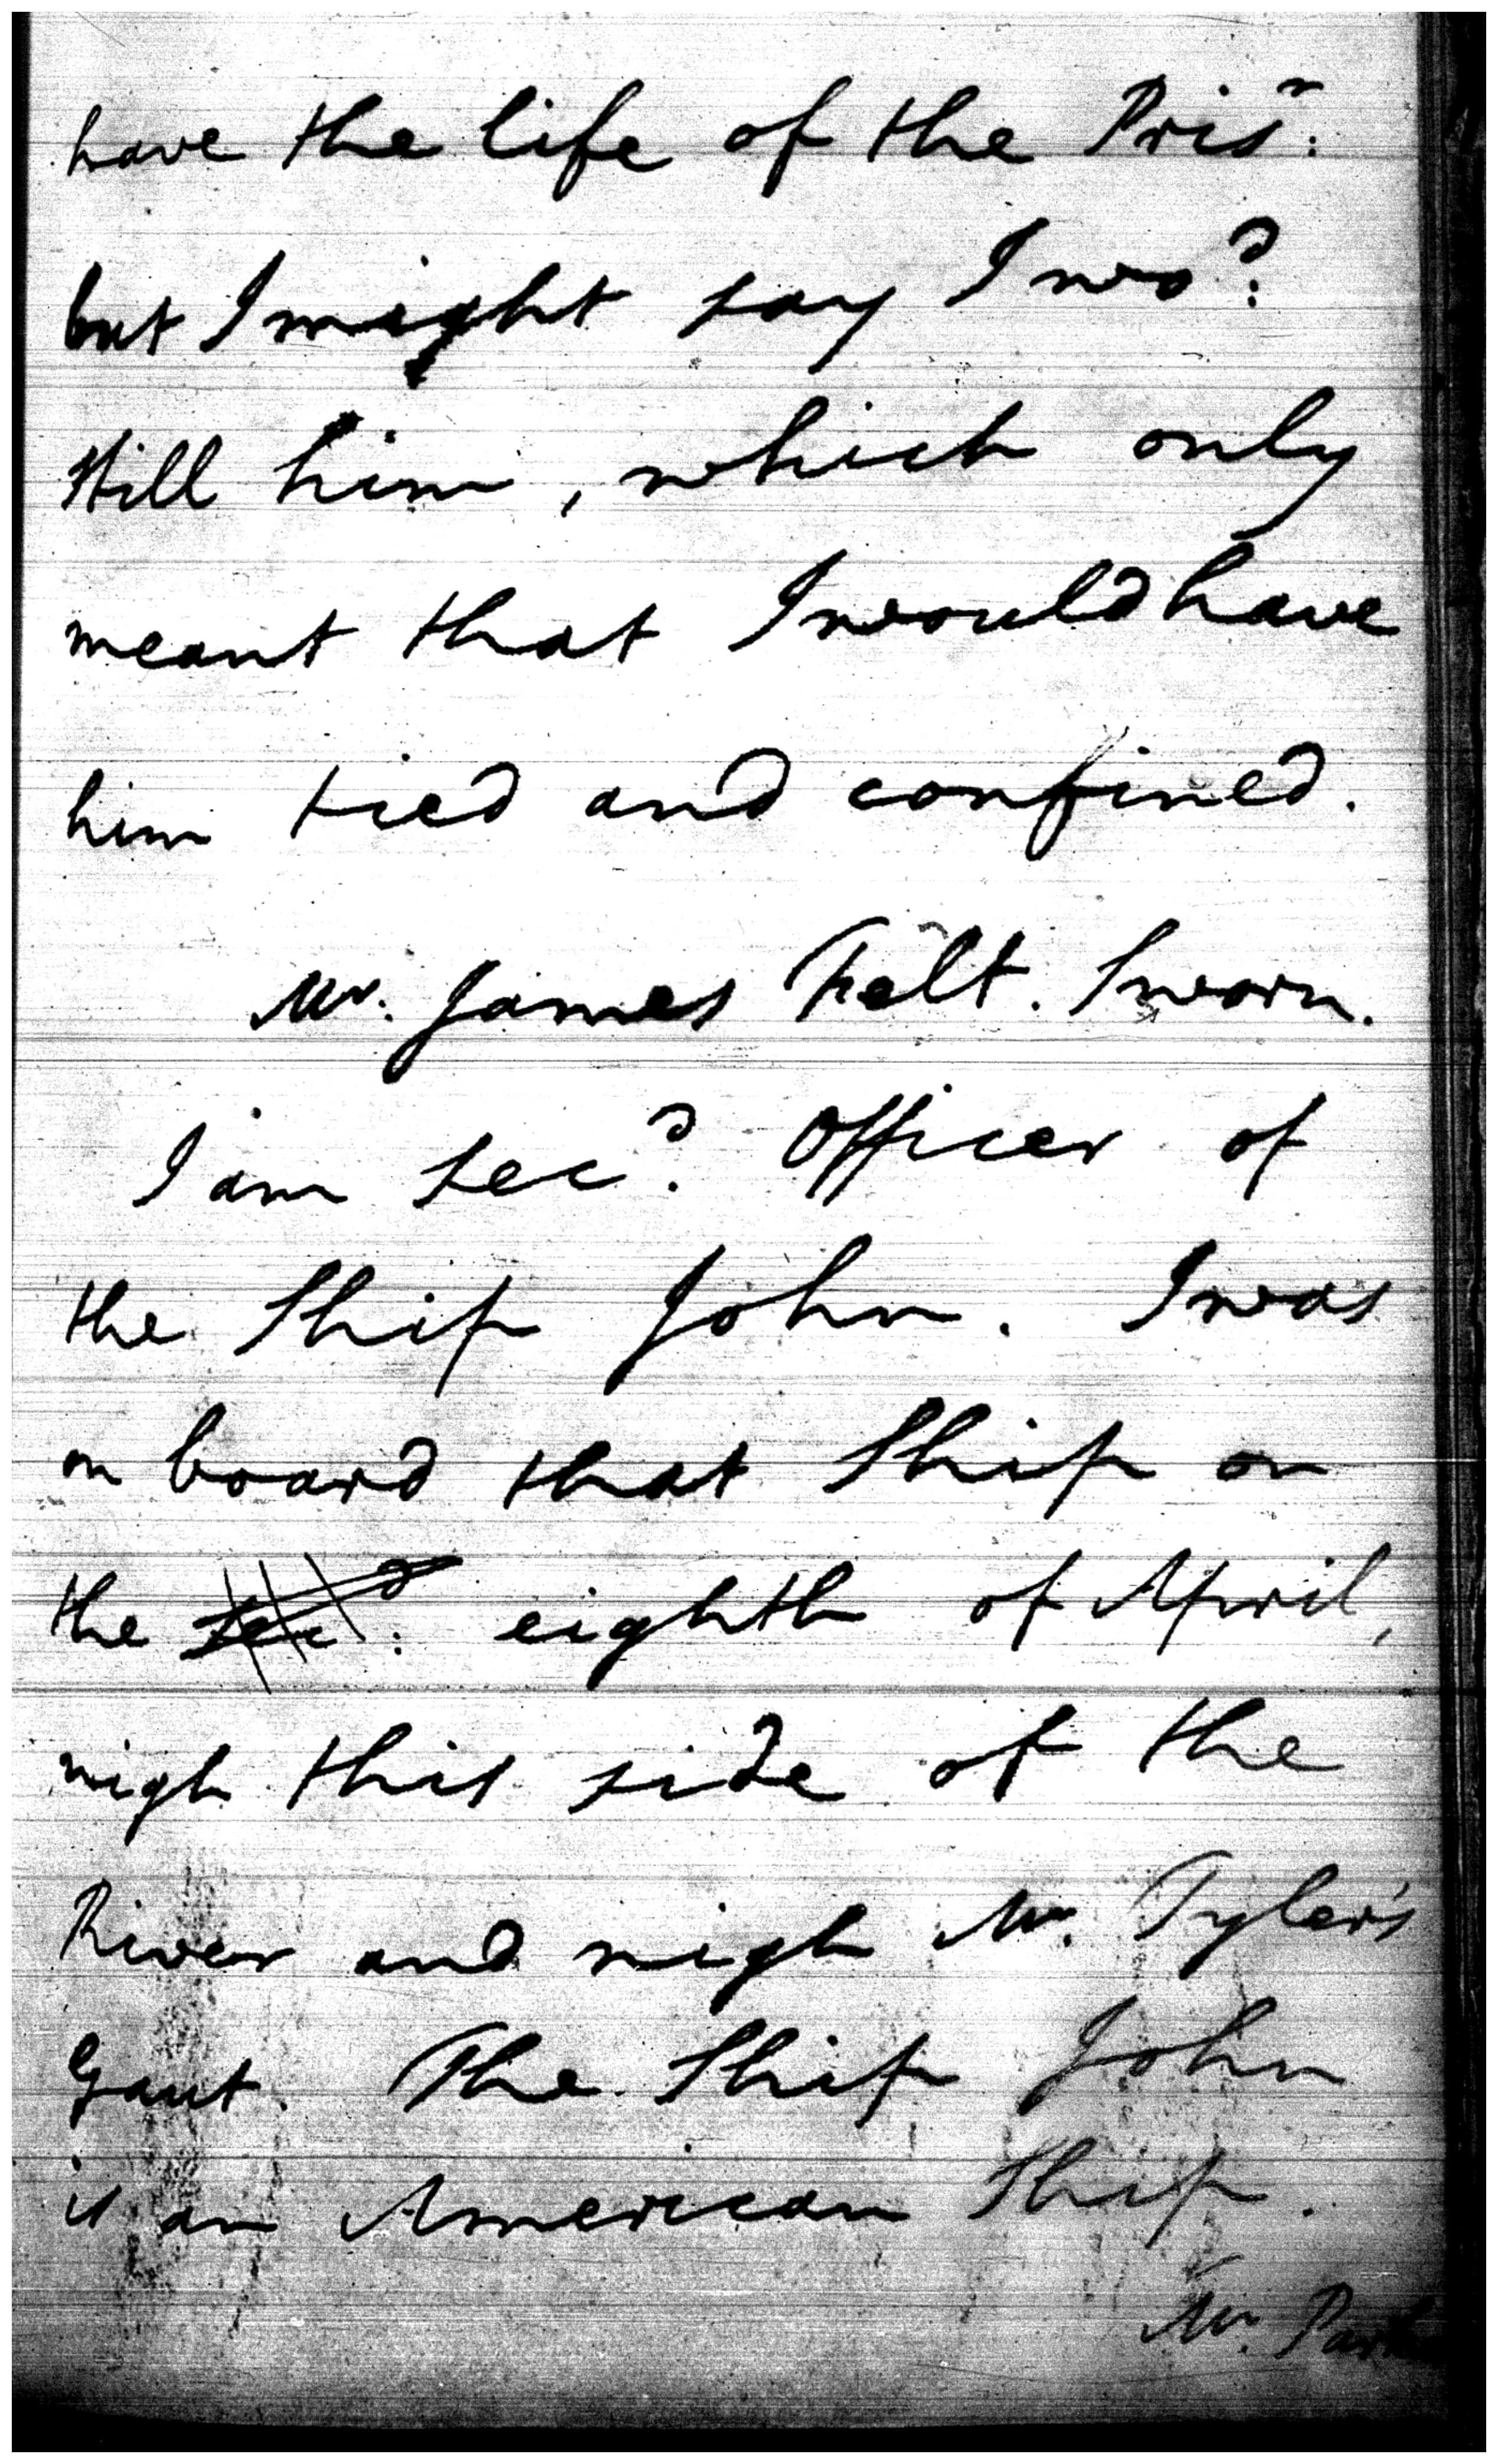 have the life of the Pris.ʳ
but I might say I wo.ᵈ
Kill him, which only
meant that I would have
him tied and confined.
Mr. James Felt. Sworn.
I am sec.ᵈ Officer of
the Ship John. I was
on board that Ship on
the sec.ᵈ eighth of April,
nigh this side of the
River and nigh Mr. Tyler's
Gaut. The Ship John
is an American Ship.
Mr.